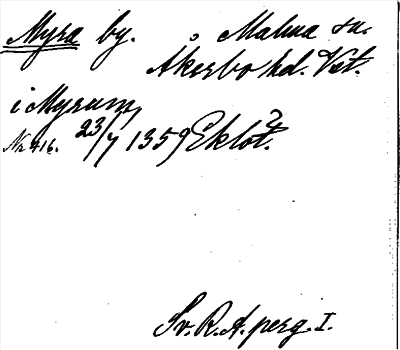 Myra by. Malma sn.
Åkerbo hd. Vstm.
i Myrum,
Nr 416. 23/7 1359 Eklöt.
Sv. R. A. perg. I.